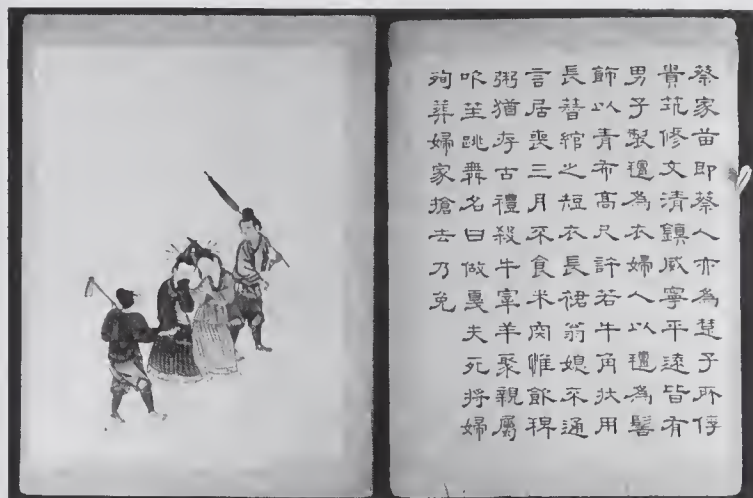 蔡家苗即蔡人亦為楚子所俘
貴筑修文清鎮威寧平遠皆有
男子製氊為衣婦人以氊為髻
飾以青布高尺許若牛角狀用
長簪綰之短衣長裙翁媳不通
言居喪三月不食米肉惟飲稗
粥猶存古禮殺牛宰羊聚親屬
吹笙跳舞名曰做戞夫死將婦
殉葬婦家搶去乃免